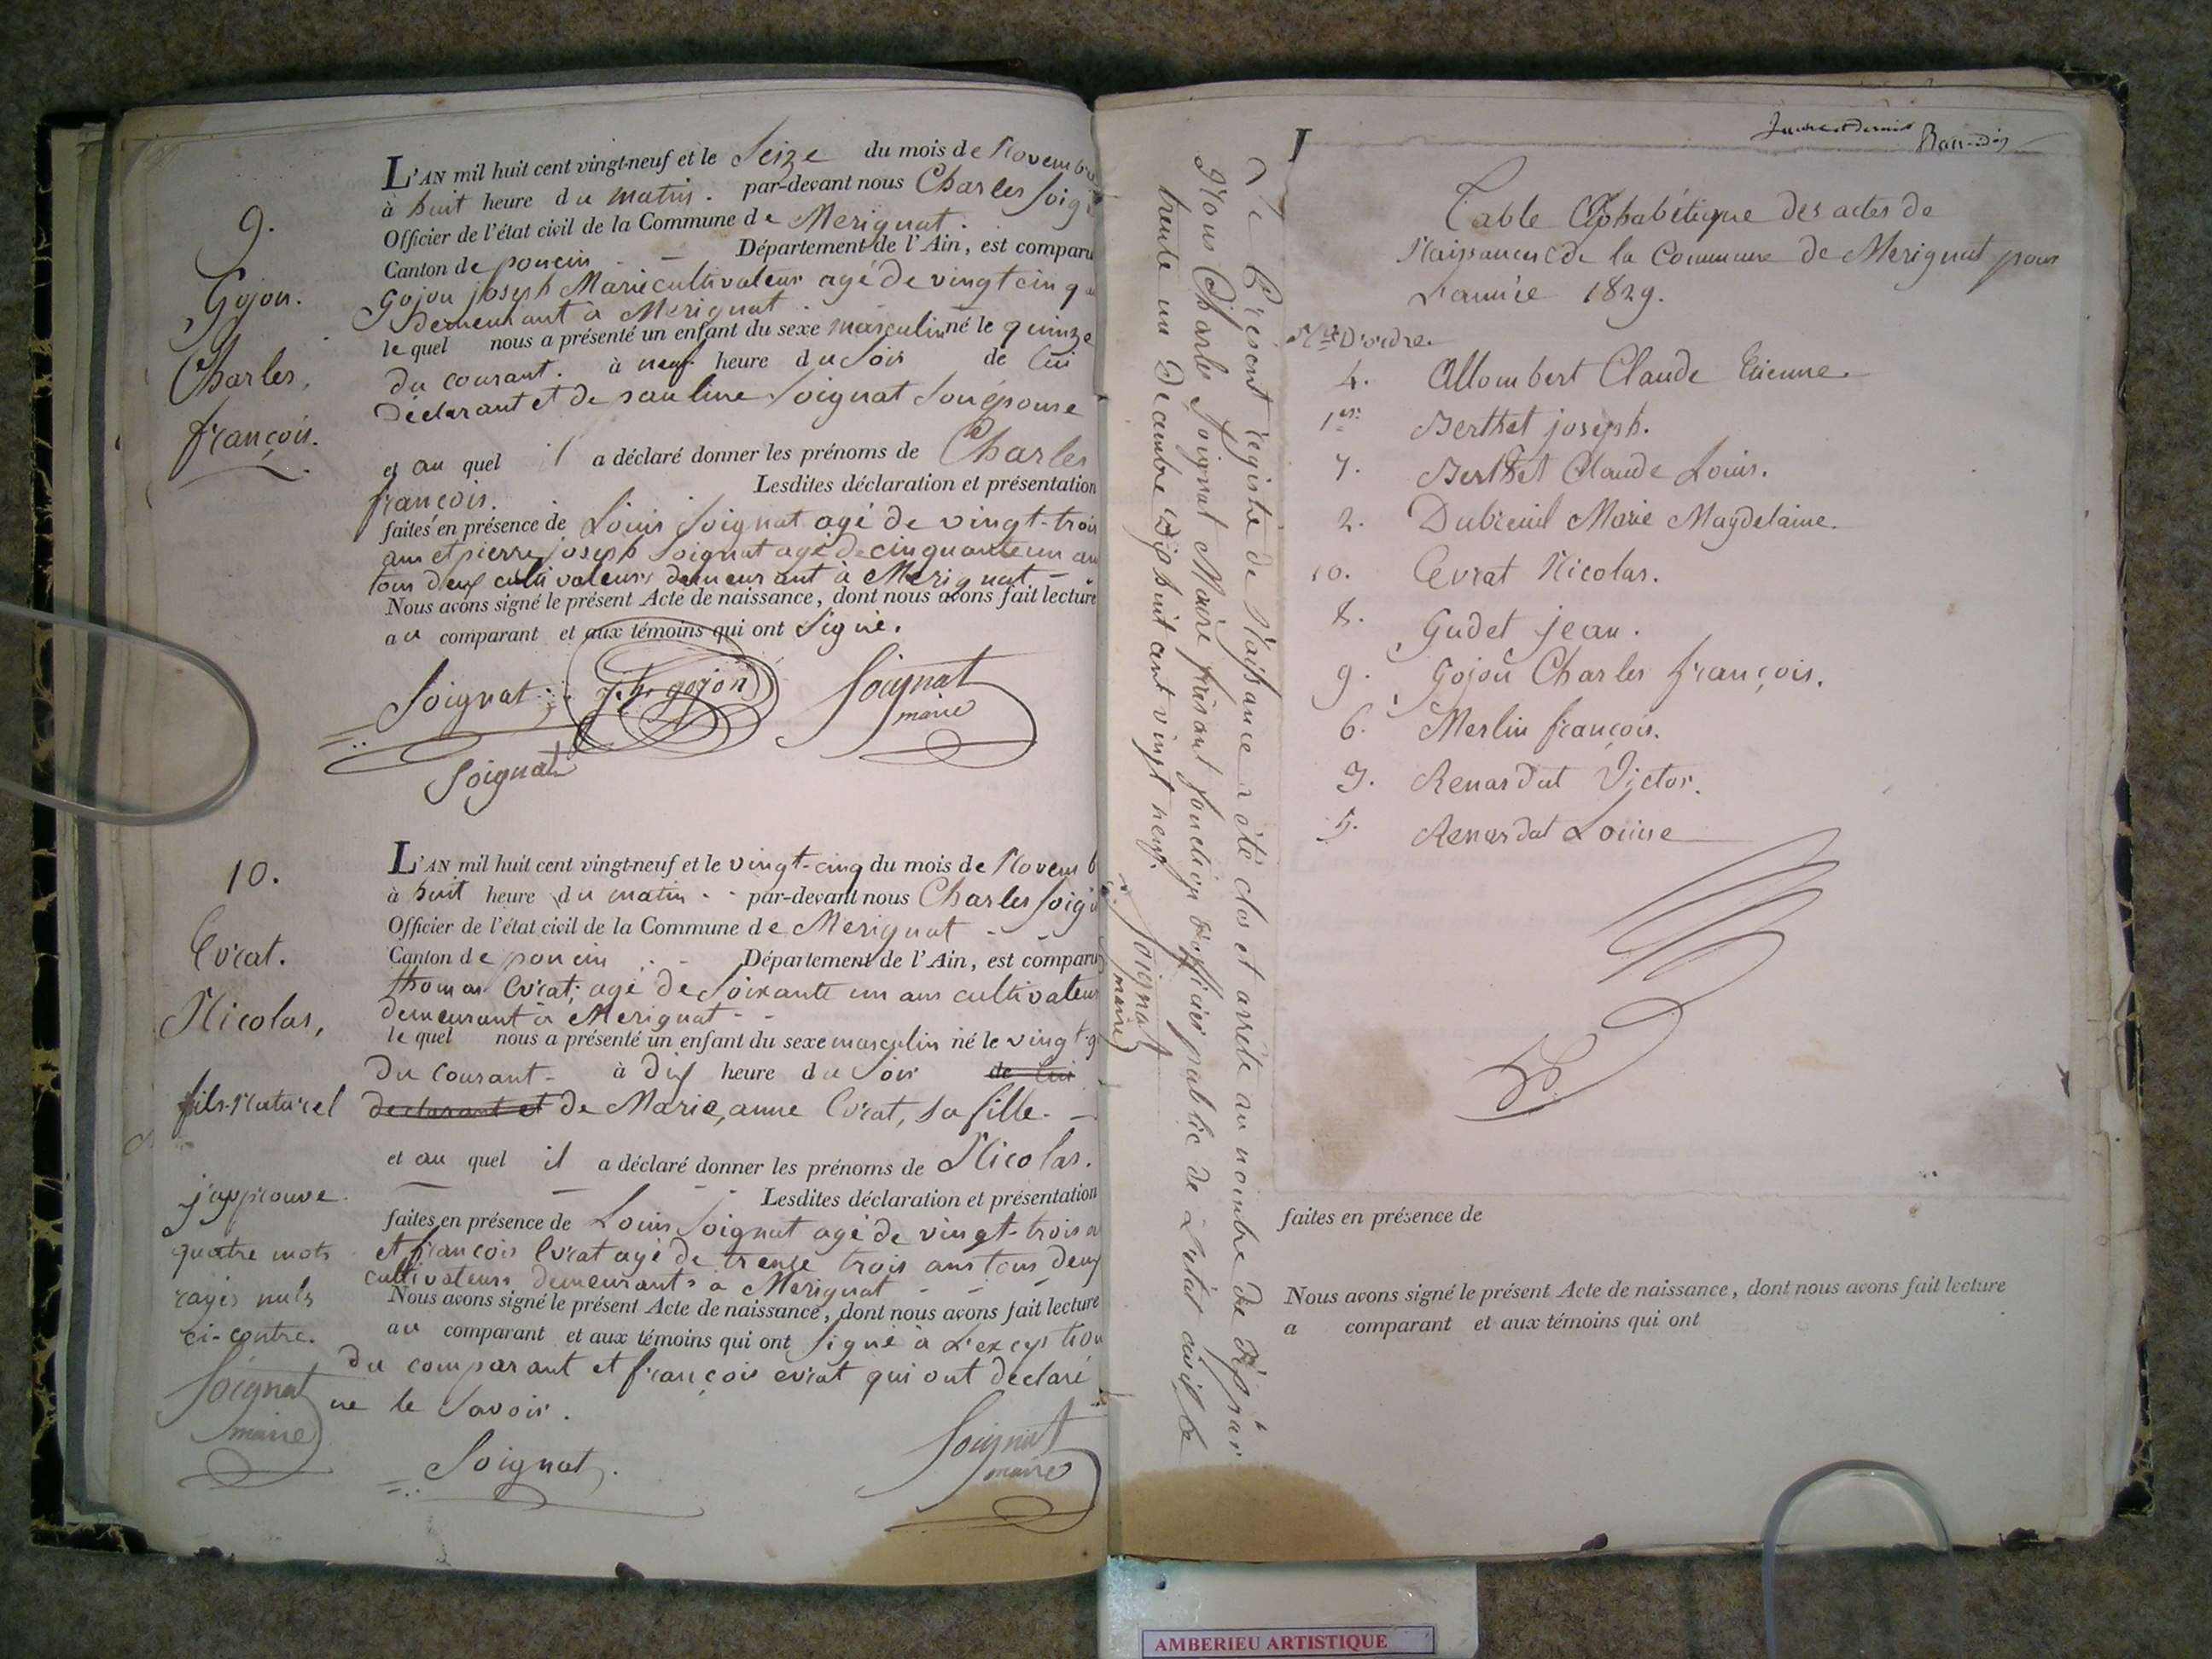 9.
Gojon.
Charles,
françois.
L'AN mil huit cent vingt-neuf et le Seize du mois de Novembre
à huit heure du matin. par-devant nous Charles Soign
Officier de l'état civil de la Commune de Merignat.
Canton de poncin Département de l'Ain, est comparu
Gojon joseph Marie cultivateur agé de vingt cinq a
demeurant à Merignat.
lequel nous a présenté un enfant du sexe masculin né le quinze
du courant. à neuf heure du Soir de lui
Déclarant et de pauline Soignat Son épouse
et au quel il a déclaré donner les prénoms de Charles
françois. Lesdites déclaration et présentation
faites en présence de Louis Soignat agé de vingt-trois
ans et pierre joseph Soignat agé de cinquante un an
tous deux cultivateurs demeurant à Merignat
Nous avons signé le présent Acte de naissance, dont nous avons fait lecture
au comparant et aux témoins qui ont Signé.
Soignat jh. gojon Soignat
maire
Soignat
10.
Evrat.
Nicolas,
fils-Naturel
j'approuve
quatre mots
rayés nuls
ci-contre.
Soignat
maire
L'AN mil huit cent vingt-neuf et le vingt-cinq du mois de Novemb
à huit heure du matin par-devant nous Charles Soign
Officier de l'état civil de la Commune de Merignat
Canton de poncin Département de l'Ain, est comparu
thomas Evrat, agé de Soixante un ans cultivateur
demeurant à Merignat
le quel nous a présenté un enfant du sexe masculin né le vingt-q
Du courant à dix heure du Soir de lui
declarant et de Marie, anne Evrat, sa fille.
et au quel il a déclaré donner les prénoms de Nicolas.
Lesdites déclaration et présentation
faites en présence de Louis Soignat agé de vingt-trois a
et françois Evrat agé de trente trois ans tous deux
cultivateurs demeurants à Merignat
Nous avons signé le présent Acte de naissance, dont nous avons fait lecture
au comparant et aux témoins qui ont Signé à L'exception
du comparant et françois evrat qui ont déclaré
ne le Savoir.
Soignat. Soignat
maire
Le Présent registre de Naissance a été clos et arrêté au nombre de dix par
Nous Charles Soignat Maire faisant fonction d'officier public de L'etat civil le
trente un Décembre Dix huit cent vingt neuf.
Soignat
maire
Table Alphabétique des actes de
Naissances de la Commune de Merignat pour
L'année 1829.
Nos D'ordre.
4. Allombert Claude Etienne.
1er Berthet joseph.
7. Berthet Claude Louis.
2. Dubreuil Marie Magdelaine.
10. Evrat Nicolas.
8. Gudet jean.
9. Gojon Charles françois.
6. Merlin françois.
3. Renardat Victor.
5. Renardat Louise
faites en présence de
Nous avons signé le présent Acte de naissance, dont nous avons fait lecture
a comparant et aux témoins qui ont
AMBERIEU ARTISTIQUE